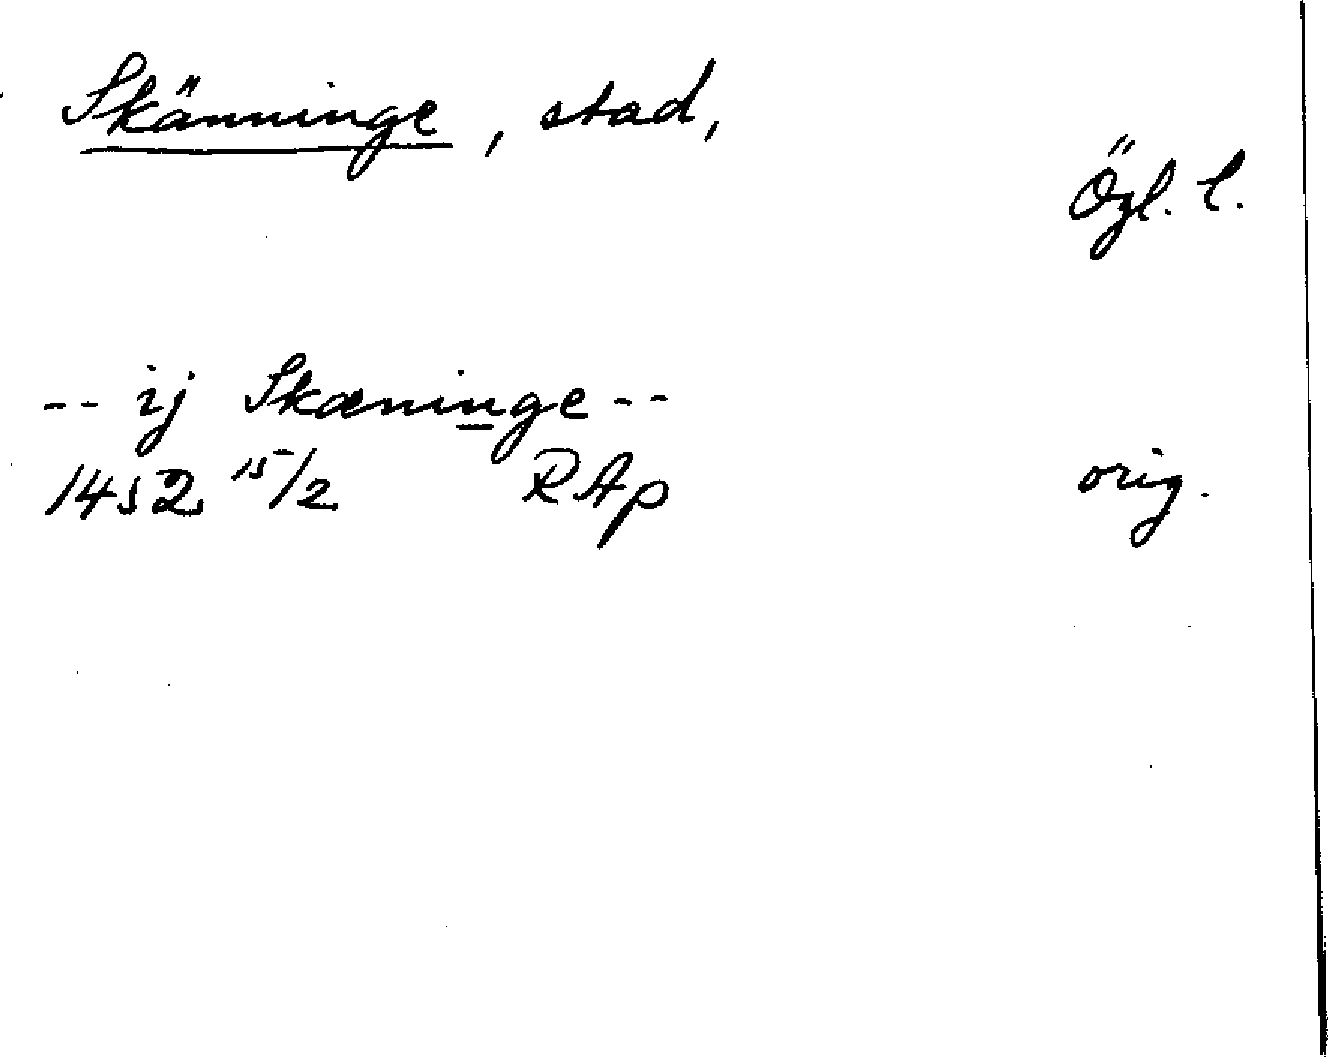 Skänninge, stad,
Ögl. l.
-- ij Skæninge --
1452 15/2 RAp orig.